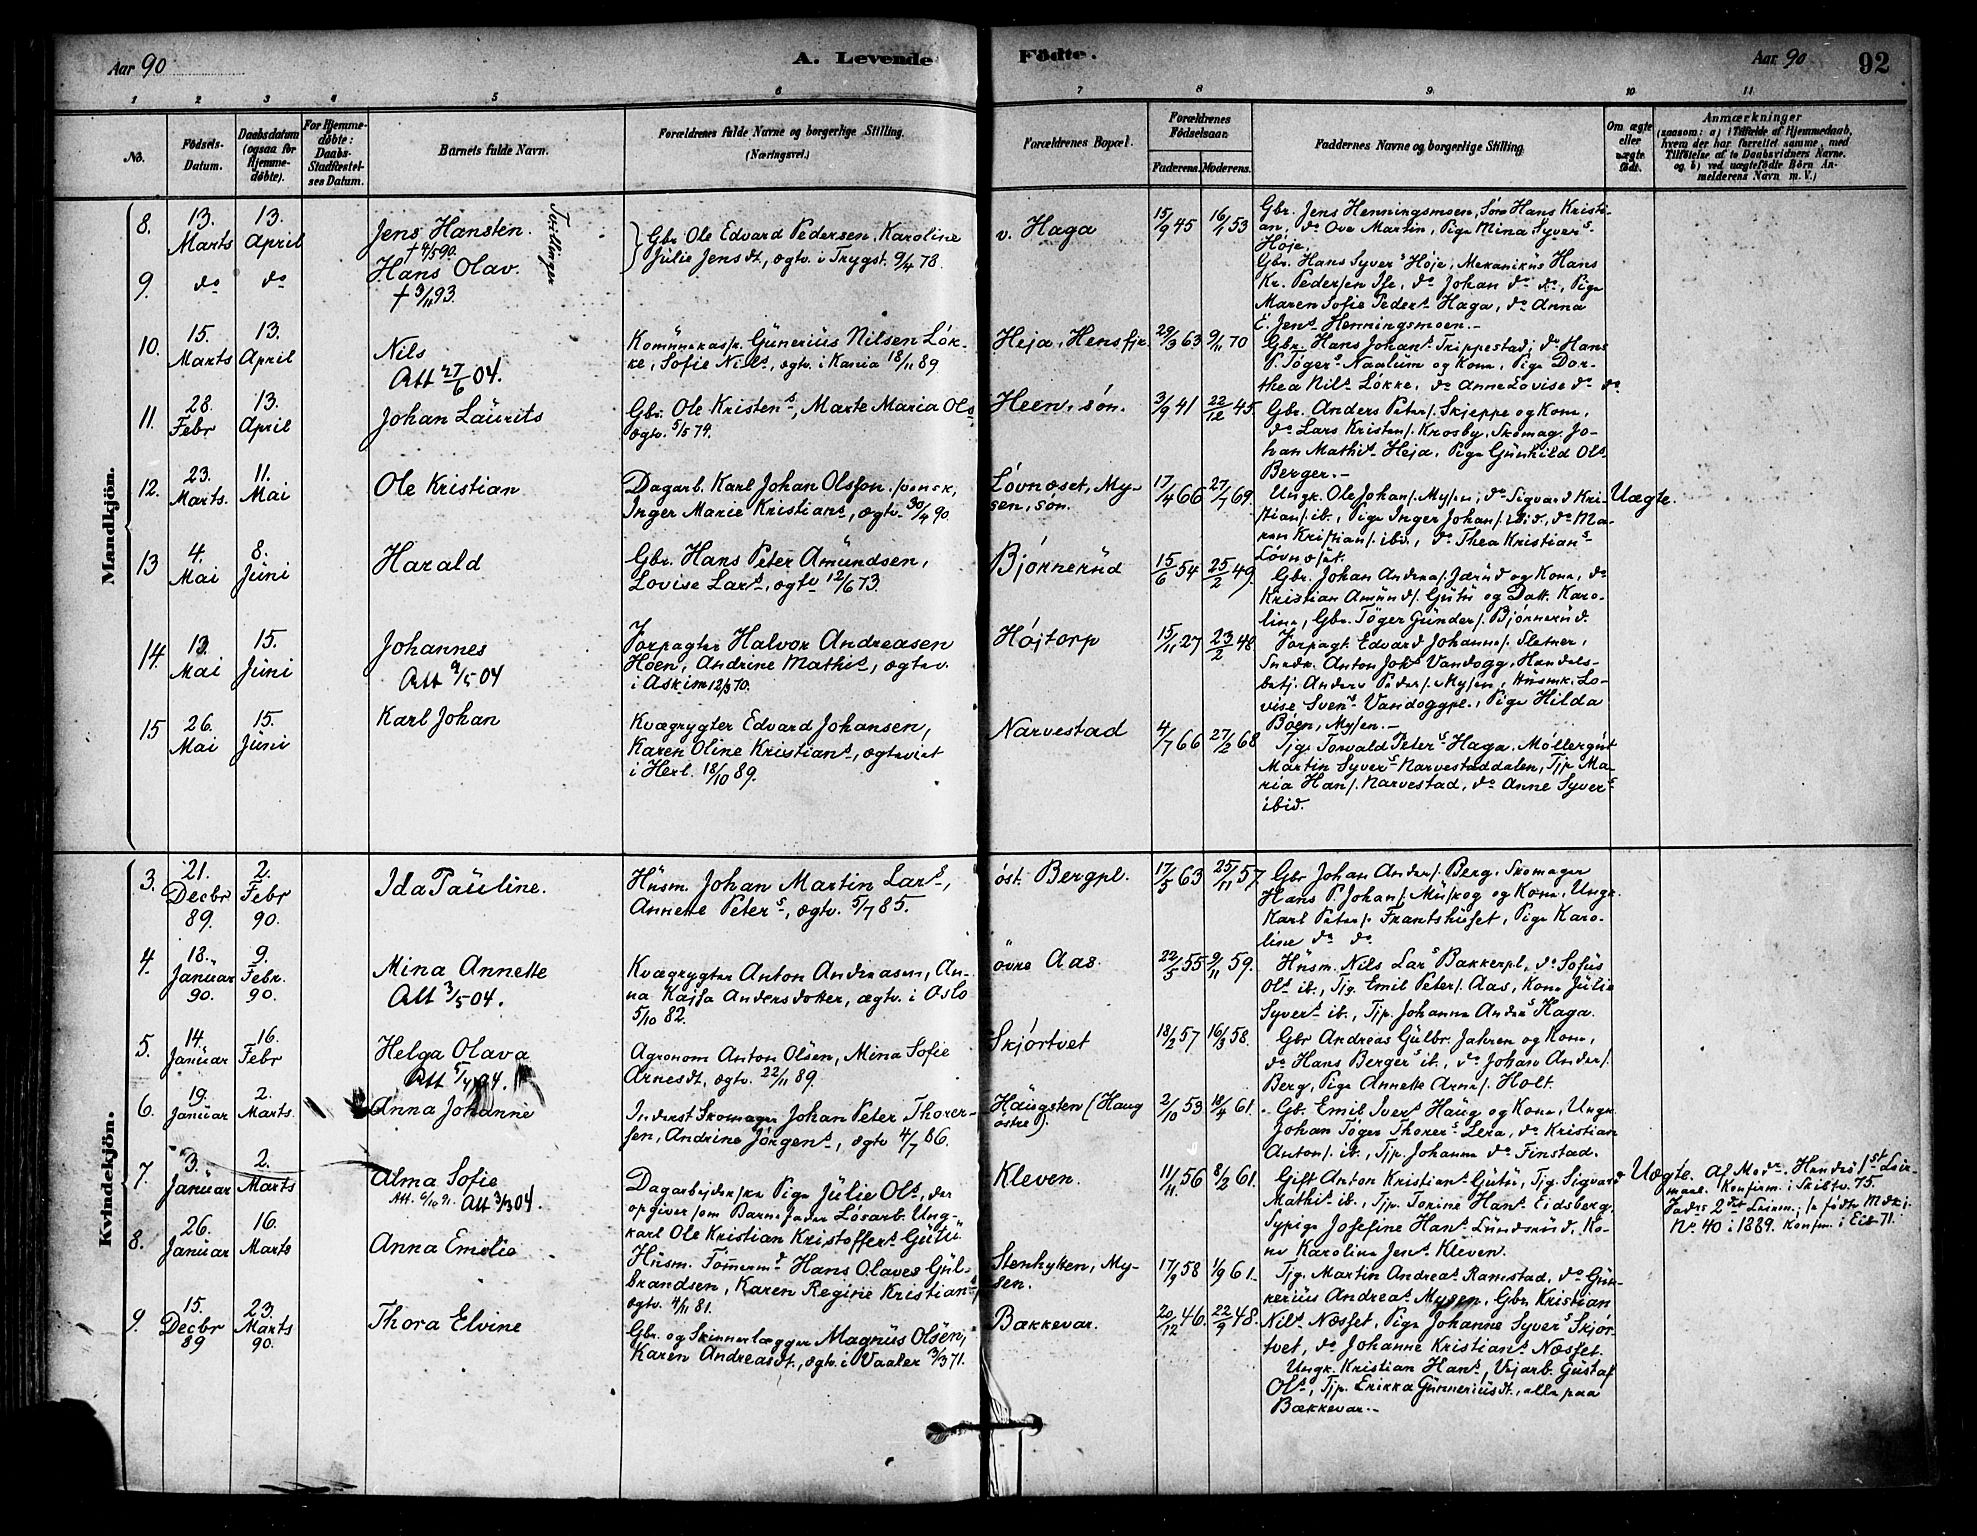 Aar 90
A. Levende Födte.
Aar 90
92
1 2 3 4 5 6 7 8 9 10 11
No.
Födsels-Datum.
Daabsdatum (ogsaa for Hjemme-döbte).
For Hjemme-döbte: Daabs-Stadfæstel-ses Datum.
Barnets fulde Navn.
Forældrenes fulde Navne og borgerlige Stilling.
(Næringsvei.)
Forældrenes Bopæl.
Forældrenes Födselsaar.
Faderens. Moderens.
Faddernes Navne og borgerlige Stilling.
Om ægte eller uægte födt.
Anmærkninger
(saasom: a) i Tilfælde af Hjemmedaab,
hvem der har forrettet samme, med
Tilföielse af to Daabsvidners Navne.
og b) ved uægtefödte Börn An-
melderens Navn m. V.)
Mandkjön.
8. 13. Marts 13. April
Jens Hansten.
† 4/5 90.
Tvillinger
Gbr. Ole Edvard Pedersen, Karoline
Julie Jensdt, ægtv. i Trygst. 9/4 78.
v. Haga
15/9 45 16/1 53
Gbr. Jens Henningsmoen, Søn Hans Kristi-
an, do Ove Martin, Pige Mina Syvers
Høje.
9. do do
Hans Olav.
† 3/11 93.
Gbr. Hans Syvers Høje, Mekanikus Hans
Kr. Pedersen Ise, do Johan do do, Pige
Maren Sofie Peders Haga, do Anna
E. Jens Henningsmoen.-
10. 15. Marts 13. April
Nils
Att 27/6 04.
Kommunekass. Gunerius Nilsen Løk-
ke, Sofie Nils, ægtv. i Rania 18/11 89.
Heja, Hensfjr.
29/3 63 9/11 70
Gbr. Hans Johans Trippestad, do Hans
P. Tøgers Naalum og Kone, Pige Dor-
thea Nils Løkke, do Anne Lovise do do
11. 28. Febr 13. April
Johan Laurits
Gbr. Ole Kristens, Marte Maria Ols
ægtv. 5/5 74.
Heen, søn.
3/9 41 22/12 45.
Gbr. Anders Peters. Skjeppe og Kone,
do Lars Kristens. Krosby, Skomag. Jo-
han Mathis Heja, Pige Gunhild Ols
Berger.-
12. 23. Marts. 11. Mai
Ole Kristian
Dagarb. Karl Johan Olsson, svensk,
Inger Marie Kristians, ægtv. 30/4 90.
Løvnæset, My-
sen, søn.
17/4 66 27/7 69.
Ungk. Ole Johans. Mysen, do Sigvard Kri-
stians. ib., Pige Inger Johans. ibid., do Ma-
ren Kristians. ibd., do Thea Kristians
Løvnæset.
Uægte.
13 4. Mai 8. Juni
Harald
Gbr. Hans Peter Amundsen,
Lovise Lars, ægtv 12/6 73.
Bjørnerud
15/6 54 25/2 49
Gbr. Johan Andreas. Jærud og Kone, do
Kristian Amunds. Gutu og Datt. Karo-
line, Gbr. Tøger Gunders. Bjørnerud.
14. 13. Mai 15. Juni
Johannes
Att 9/5 04
Forpagter Halvor Andreasen
Hoen, Andrine Mathis, ægtev.
i Askim 12/3 70.
Højtorp
15/11 27 23/2 48
Forpagt. Edvard Johanns. Sletner,
Snedk. Anton Johs Vandogg, Handels-
betj. Anders Peders. Mysen, Husmk. Lo-
vise Svens Vandoggpl., Pige Hilda
Boen, Mysen.-
15 26. Mai 15. Juni
Karl Johan
Kvægrygter Edvard Johansen,
Karen Oline Kristians, ægteviet
i Herl. 18/10 89.
Narvestad
4/7 66 27/2 68
Tjg. Torvald Peters Haga, Møllergut
Martin Syvers Narvestaddalen, Tjp Ma-
ria Hans. Narvestad, do Anne Syvers
ibid.
Kvindekjön.
3. 21. Decbr 89. 2. Febr 90.
Ida Pauline.
Husm. Johan Martin Lars,
Annette Peters, ægtv. 5/7 85.
øst. Bergpl.
17/5 63 25/11 57
Gbr Johan Anders. Berg, Skomager
Hans P. Johans. Muskog og Kone, Ungk.
Karl Peters. Frantshuset, Pige Karo-
line do do.
4. 18. Januar 90. 9. Febr. 90.
Mina Annette
Att 3/5 04.
Kvægrygter Anton Andreasen, An-
na Kajsa Andersdotter, ægtv. i Oslo
5/10 82.
övre Aas.
22/5 55 9/11 59.
Husm. Nils Lars Bakkerpl, do Sofus
Ols ib., Tjg. Emil Peters. Aas, Kone Julie
Syvers ib., Tjp. Johanne Anders Haga.
5. 14. Januar 16. Febr
Helga Olava
Att 5/4 04.
Agronom Anton Olsen, Mina Sofie
Arnesdt, ægtv. 22/11 89.
Skjørtvet
18/2 57 16/3 58.
Gbr Andreas Gulbr. Jahren og Kone,
do Hans Bergers ib., do Johan Anders.
Berg, Pige Annette Arnes. Holt.
6. 19. Januar 2. Marts.
Anna Johanne
Inderst Skomager Johan Peter Thorer-
sen, Andrine Jørgens, ægtv 4/7 86.
Haugsten (Haug
østre).
2/10 53 18/4 61.
Gb. Emil Ivers Haug og Kone, Ungk.
Johan Tøger Thorers Lera, do Kristian
Antons. ib., Tjp. Johanne do Finstad.
7. 3. Januar 2. Marts
Alma Sofie
Att. 6/10 91. Att 3/3 04.
Dagarbejderske Pige Julie Ols, der
opgiver som Barnefader Løsarb. Ung-
karl Ole Kristian Kristoffers Gutu
Kleven.
11/11 56 8/2 61.
Gift Anton Kristians Gutu, Tjg. Sigvard
Mathis ib., Tjp. Torine Hans Eidsberg,
Sypige Josefine Hans Lundsrud, Ko-
ne Karoline Jens Kleven.
Uægte.
Af Modr. Hendes 1st Leir-
maal. Konfirm. i Skibtv. 75.
Faders 2det Leirm.; se fødte Mdkj.
No. 40 i 1889. Konfm. i Eib 71.
8. 26. Januar 16. Marts
Anna Emilie
Husm. Tømermd Hans Olaves Gul-
brandsen, Karen Regine Kristians
ægtv. 4/11 81.
Stenhytten, My-
sen.
17/9 58 1/9 61.
Tjg. Martin Andreas Ramstad, do Gun-
nerius Andreas Mysen, Gbr. Kristian
Nils Næsset, Pige Johanne Syvers Skjør-
tvet, do Johanne Kristians Næsset.
9. 15. Decbr 89 23. Marts 90.
Thora Elvine
Gbr. og Skinnerlægger Magnus Olsen,
Karen Andreasdt., ægtv. i Vaaler 3/3 71.
Bækkevar.
20/12 46. 22/9 48.
Ungk. Kristian Hans, Vejarb. Gustaf
Ols, Tjp. Erikka Gunneriusdt., alle paa
Bækkevar.-